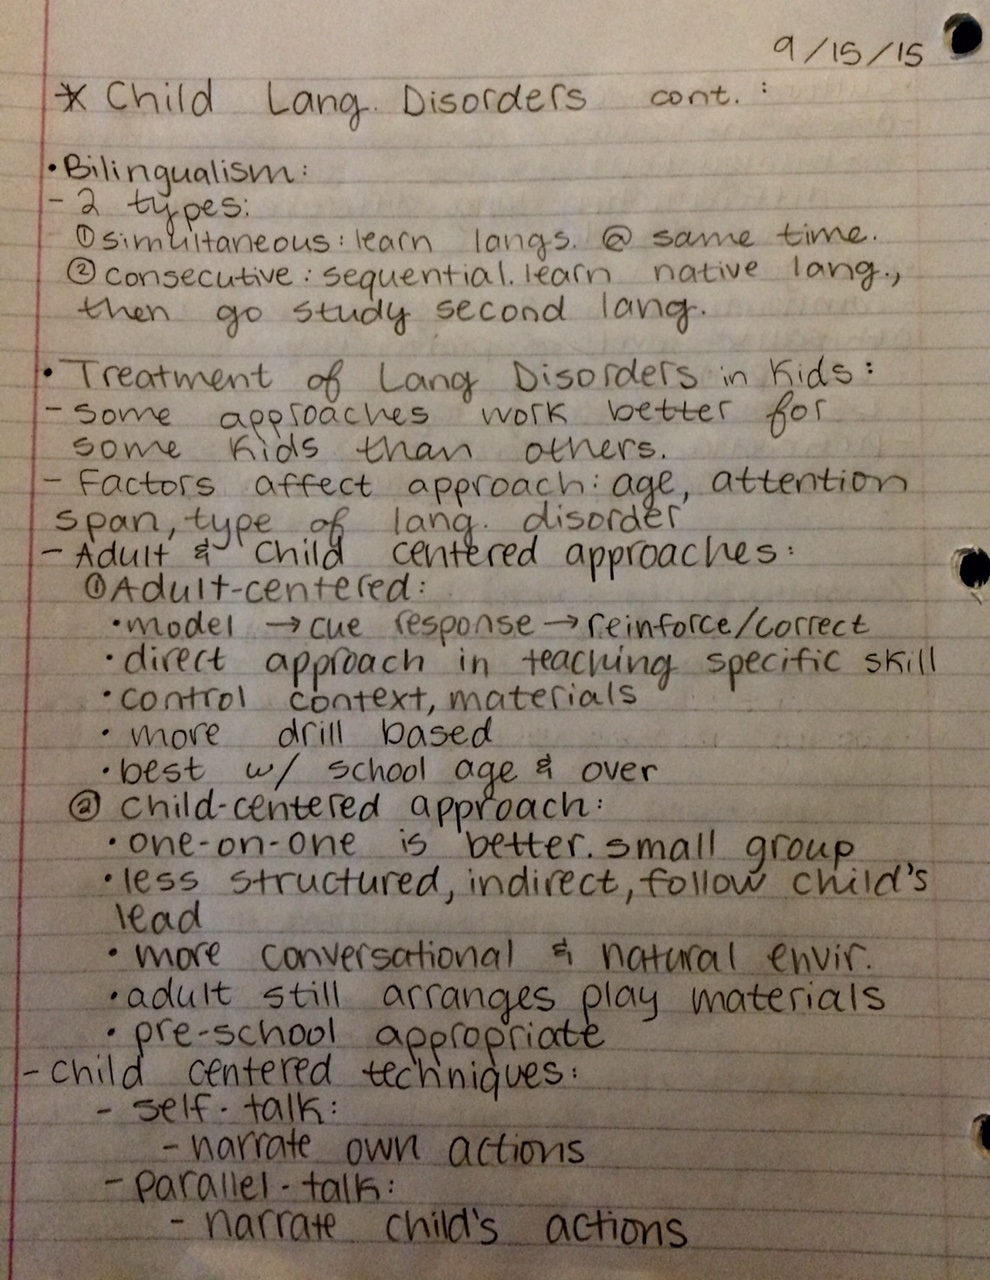 9/15/15
* Child Lang. Disorders cont. :
• Bilingualism:
- 2 types:
① simultaneous: learn langs. @ same time.
② consecutive: sequential. learn native lang.,
then go study second lang.
• Treatment of Lang Disorders in Kids:
- some approaches work better for
some kids than others.
- Factors affect approach: age, attention
span, type of lang. disorder
- Adult & Child centered approaches:
① Adult-centered:
• model → cue response → reinforce/correct
• direct approach in teaching specific skill
• control context, materials
• more drill based
• best w/ school age & over
② Child-centered approach:
• one-on-one is better. small group
• less structured, indirect, follow child's
lead
• more conversational & natural envir.
• adult still arranges play materials
• pre-school appropriate
- child centered techniques:
- self-talk:
- narrate own actions
- parallel-talk:
- narrate child's actions